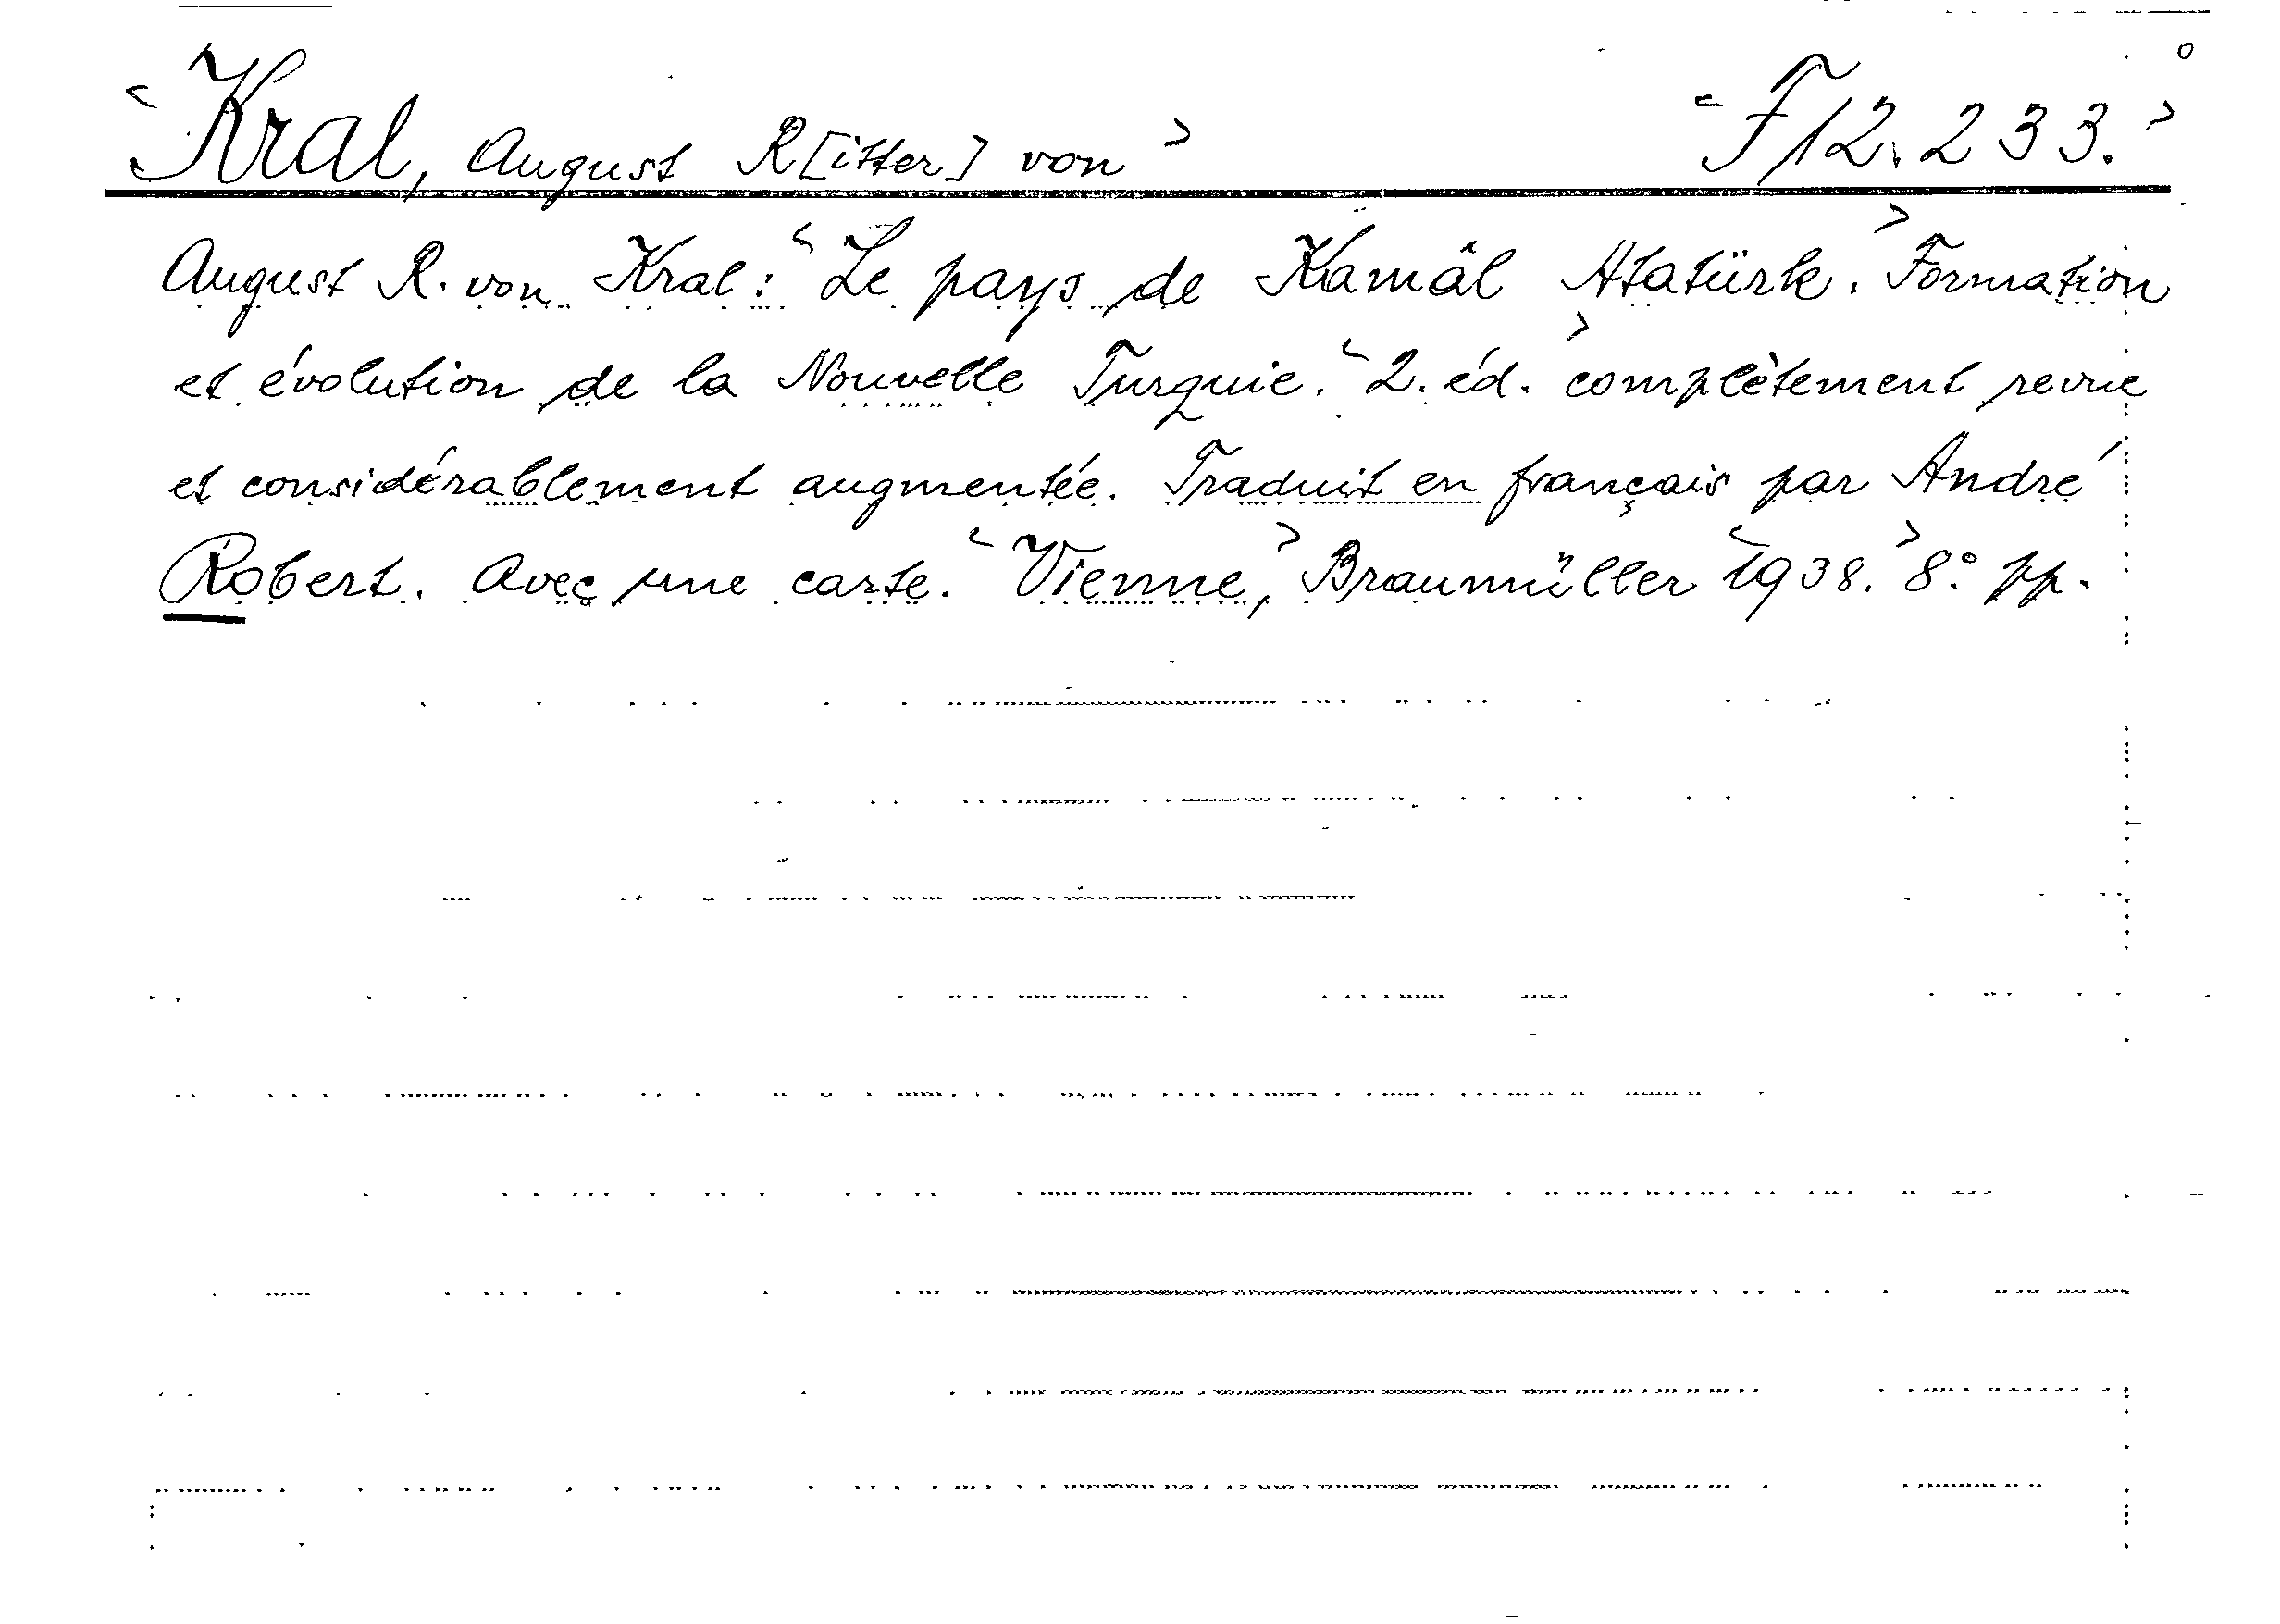 <Kral, August R[itter] von> <F 12.233.>
August R. von Kral: <Le pays de Kamâl Atatürk.> Formation
et évolution de la Nouvelle Turquie. <2. éd.> complètement revue
et considérablement augmentée. Traduit en français par André
Robert. Avec une carte. <Vienne,> Braumüller <1938.> 8° pp.